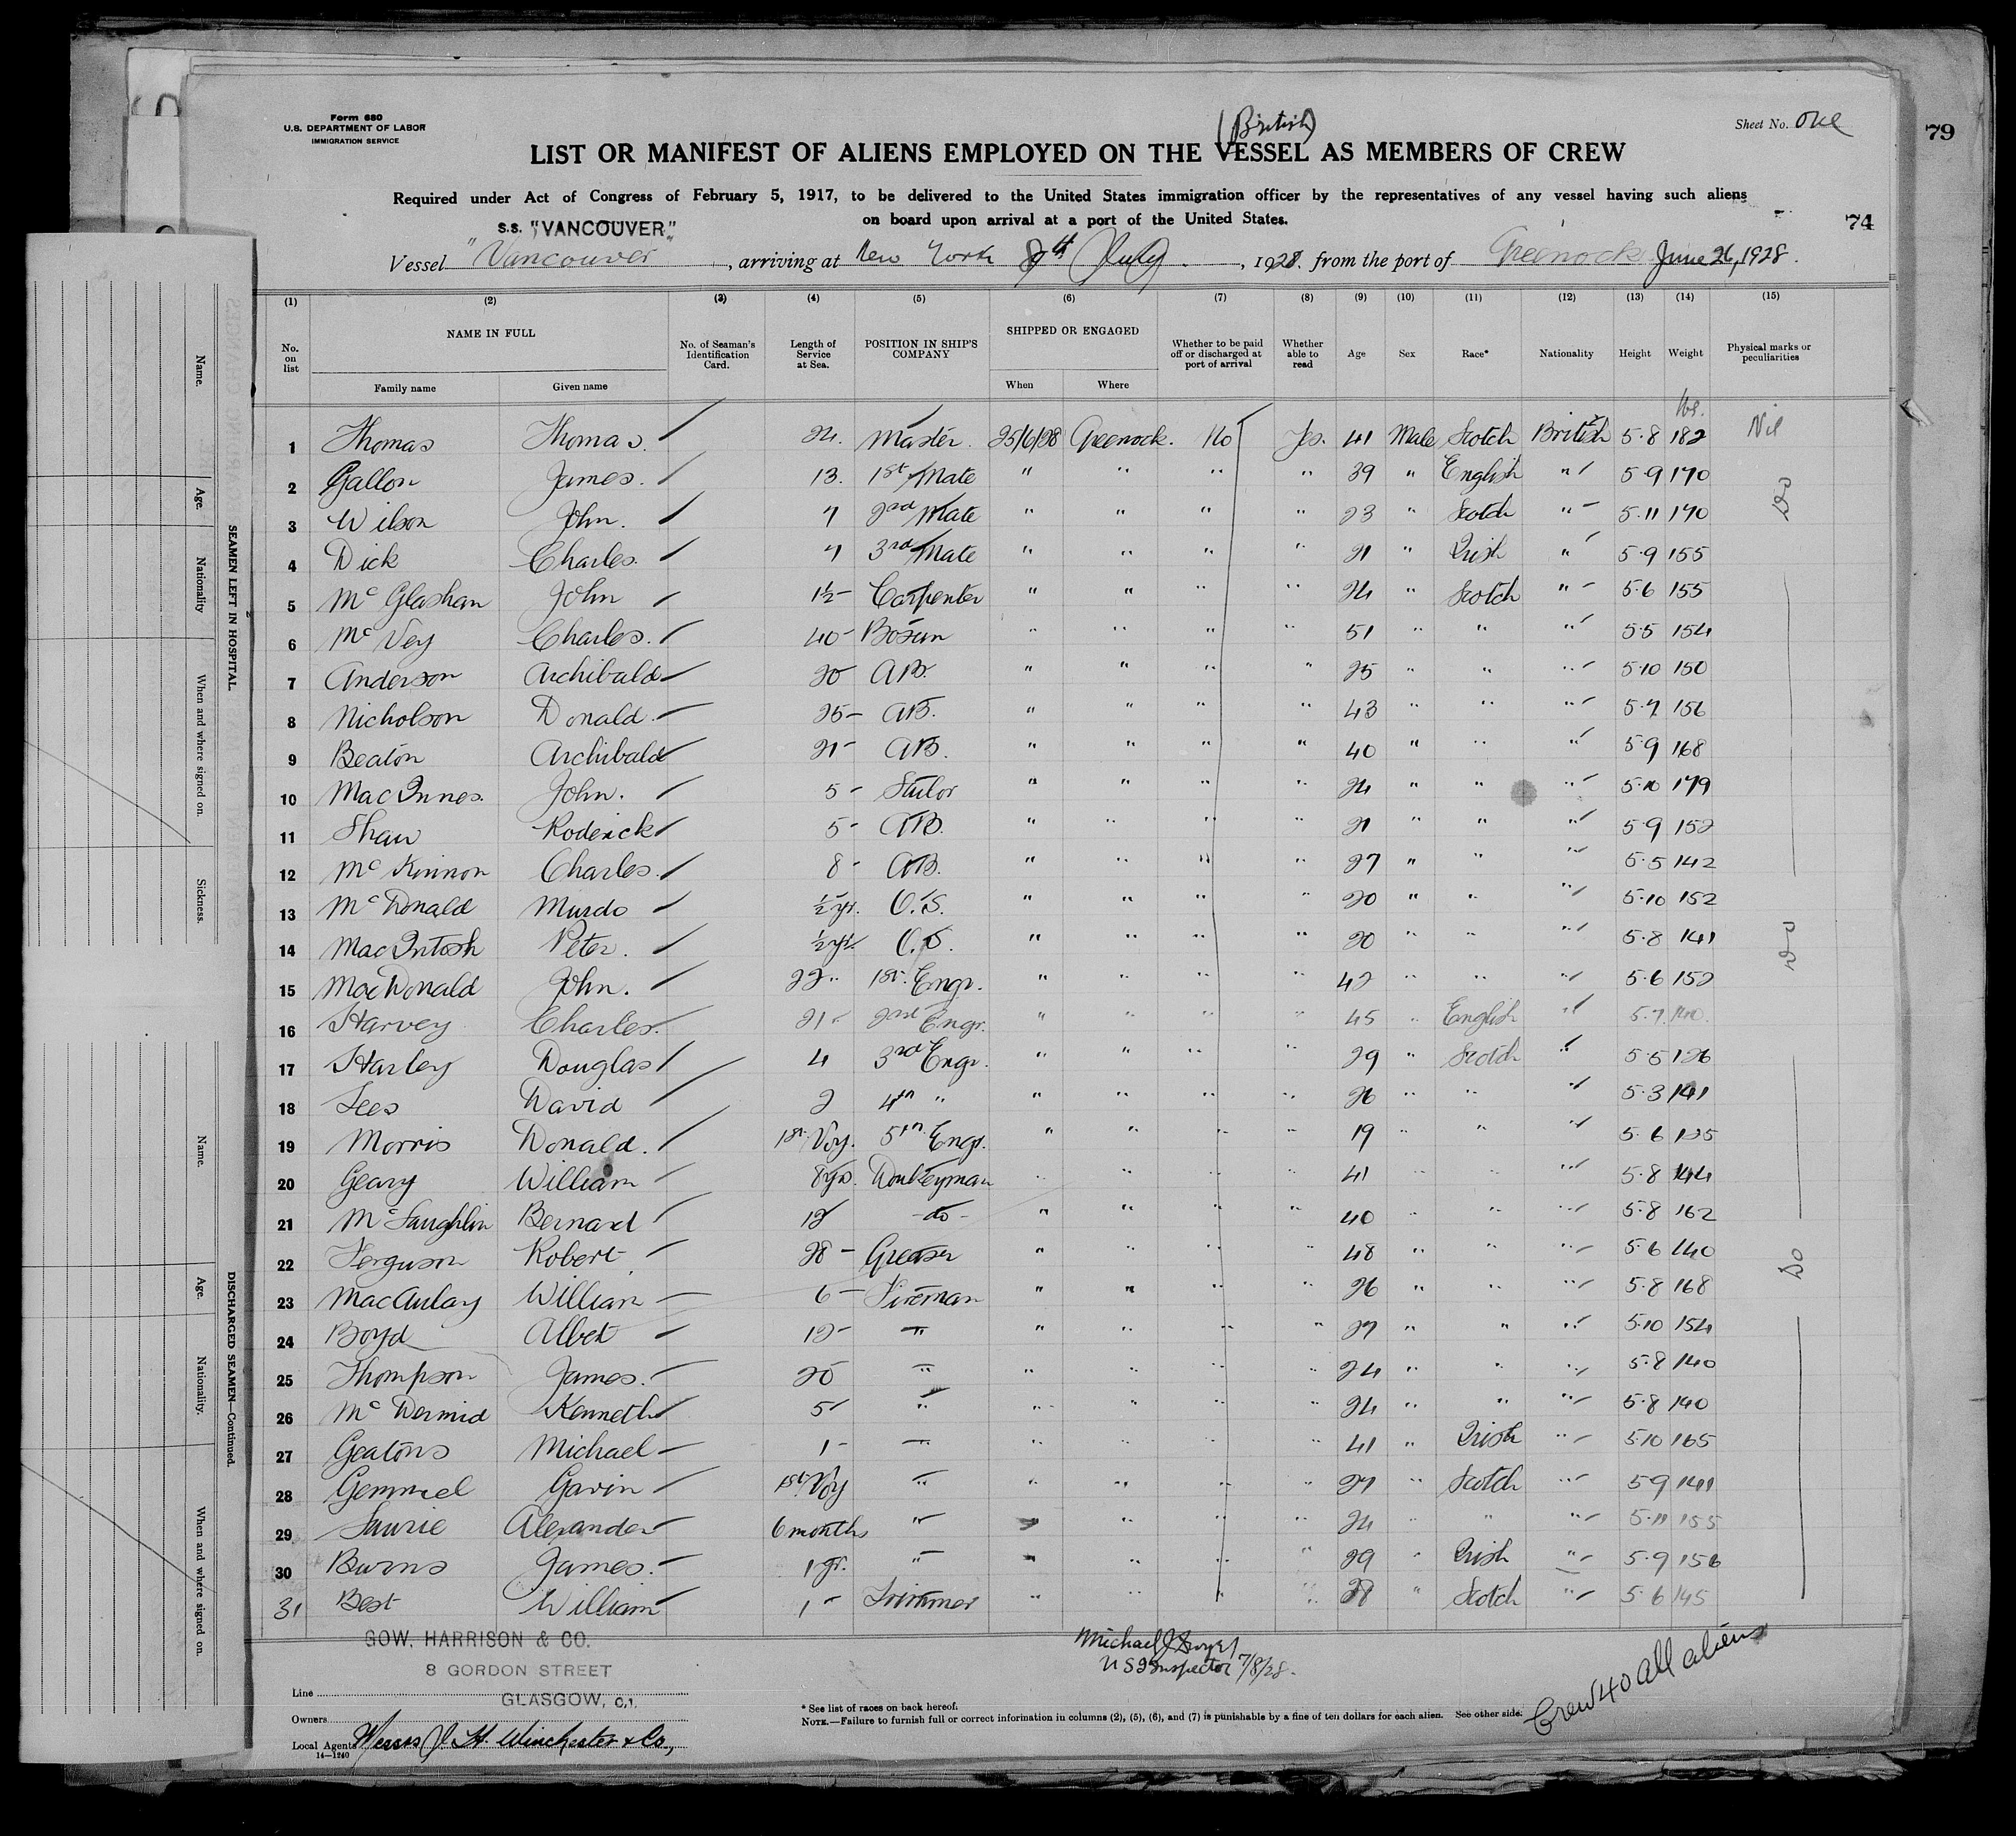 79
Form 680
U.S. DEPARTMENT OF LABOR
IMMIGRATION SERVICE
(British)
Sheet No. One
LIST OR MANIFEST OF ALIENS EMPLOYED ON THE VESSEL AS MEMBERS OF CREW
Required under Act of Congress of February 5, 1917, to be delivered to the United States immigration officer by the representatives of any vessel having such aliens
on board upon arrival at a port of the United States.
74
S.S. "VANCOUVER"
Vessel "Vancouver", arriving at New York 8th July, 1928. from the port of Greenock June 26, 1928.
(1) (2) (3) (4) (5) (6) (7) (8) (9) (10) (11) (12) (13) (14) (15)
No. on list NAME IN FULL Family name Given name No. of Seaman's Identification Card. Length of Service at Sea. POSITION IN SHIP'S COMPANY SHIPPED OR ENGAGED When Where Whether to be paid off or discharged at port of arrival Whether able to read Age Sex Race* Nationality Height Weight Physical marks or peculiarities
lbs.
1 Thomas Thomas. 24. Master. 25/6/28 Greenock. No Yes. 41 Male Scotch British 5.8 182 Nil
2 Gallon James. 13. 1st Mate " " " " 39 " English " 5.9 170
3 Wilson John. 7 2nd Mate " " " " 23 " Scotch " 5.11 170 Do
4 Dick Charles. 7 3rd Mate " " " " 21 " Irish " 5.9 155
5 McGlashan John 1½ Carpenter " " " " 24 " Scotch " 5.6 155
6 McVey Charles. 40 Bosun " " " " 51 " " " 5.5 154
7 Anderson Archibald 20 A.B. " " " " 25 " " " 5.10 150
8 Nicholson Donald. 25 A.B. " " " " 43 " " " 5.7 156
9 Beaton Archibald 21 A.B. " " " " 40 " " " 5.9 168
10 MacInnes. John. 5 Sailor " " " " 24 " " " 5.10 179
11 Shaw Roderick 5 A.B. " " " " 21 " " " 5.9 152
12 McKinnon Charles. 8 A.B. " " " " 27 " " " 5.5 142
13 McDonald Murdo ½ yr. O.S. " " " " 20 " " " 5.10 152
14 MacIntosh Peter. ½ yr. O.S. " " " " 20 " " " 5.8 141 Do
15 MacDonald John. 22 1st. Engr. " " " " 42 " " " 5.6 152
16 Harvey Charles. 21 2nd Engr. " " " " 45 " English " 5.7 140.
17 Harley Douglas 4 3rd Engr. " " " " 29 " Scotch " 5.5 126
18 Lees David 2 4th " " " " " 26 " " " 5.3 141
19 Morris Donald. 1st. Voy. 5th Engr. " " " " 19 " " " 5.6 125
20 Geary William 8 yrs. Donkeyman " " " " 41 " " " 5.8 144
21 McLaughlin Bernard 12 - do - " " " " 40 " " " 5.8 162
22 Ferguson Robert 28 Greaser " " " " 48 " " " 5.6 140 Do
23 MacAulay William 6 Fireman " " " " 26 " " " 5.8 168
24 Boyd Albert 12 " " " " " 27 " " " 5.10 154
25 Thompson James. 20 " " " " " 24 " " " 5.8 140
26 McDermid Kenneth 5 " " " " " 24 " " " 5.8 140
27 Geatons Michael 1 " " " " " 41 " Irish " 5.10 165
28 Gemmel Gavin 1st. Voy " " " " " 27 " Scotch " 5.9 141
29 Laurie Alexander 6 months " " " " " 24 " " " 5.11 155
30 Burns James. 1 yr. " " " " " 29 " Irish " 5.9 156
31 Best William 1 Trimmer " " " " 28 " Scotch " 5.6 145
GOW, HARRISON & CO.
8 GORDON STREET
GLASGOW, C.1.
Line
Owners
Local Agents Messrs J. H. Winchester & Co.,
14—1240
U S Inspector 7/8/28.
Crew 40 all aliens
* See list of races on back hereof.
NOTE.—Failure to furnish full or correct information in columns (2), (5), (6), and (7) is punishable by a fine of ten dollars for each alien. See other side.
SEAMEN LEFT IN HOSPITAL.
Name.
Age.
Nationality
When and where signed on.
Sickness.
DISCHARGED SEAMEN—Continued.
Name.
Age.
Nationality.
When and where signed on.